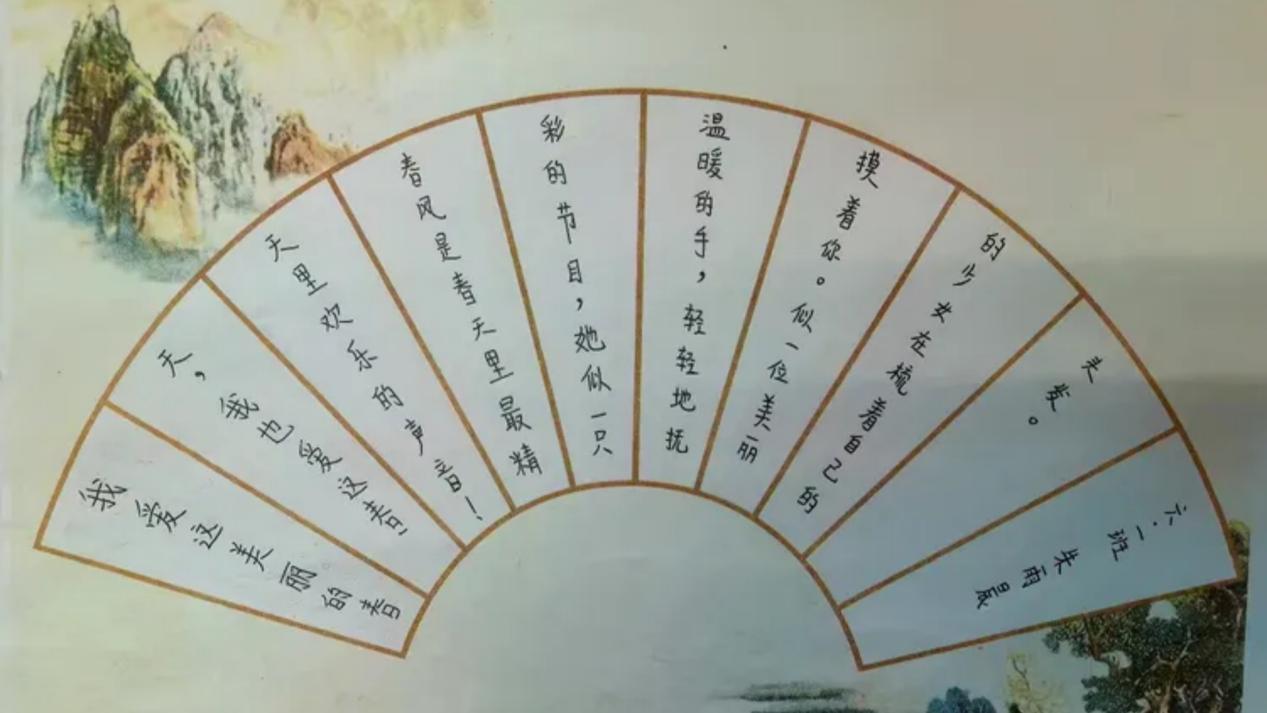 我爱这美丽的春
天，我也爱这春
天里欢乐的声音！
春风是春天里最精
彩的节目，她似一只
温暖的手，轻轻地抚
摸着你。似一位美丽
的少女在梳着自己的
头发。
六.一班 朱雨晨